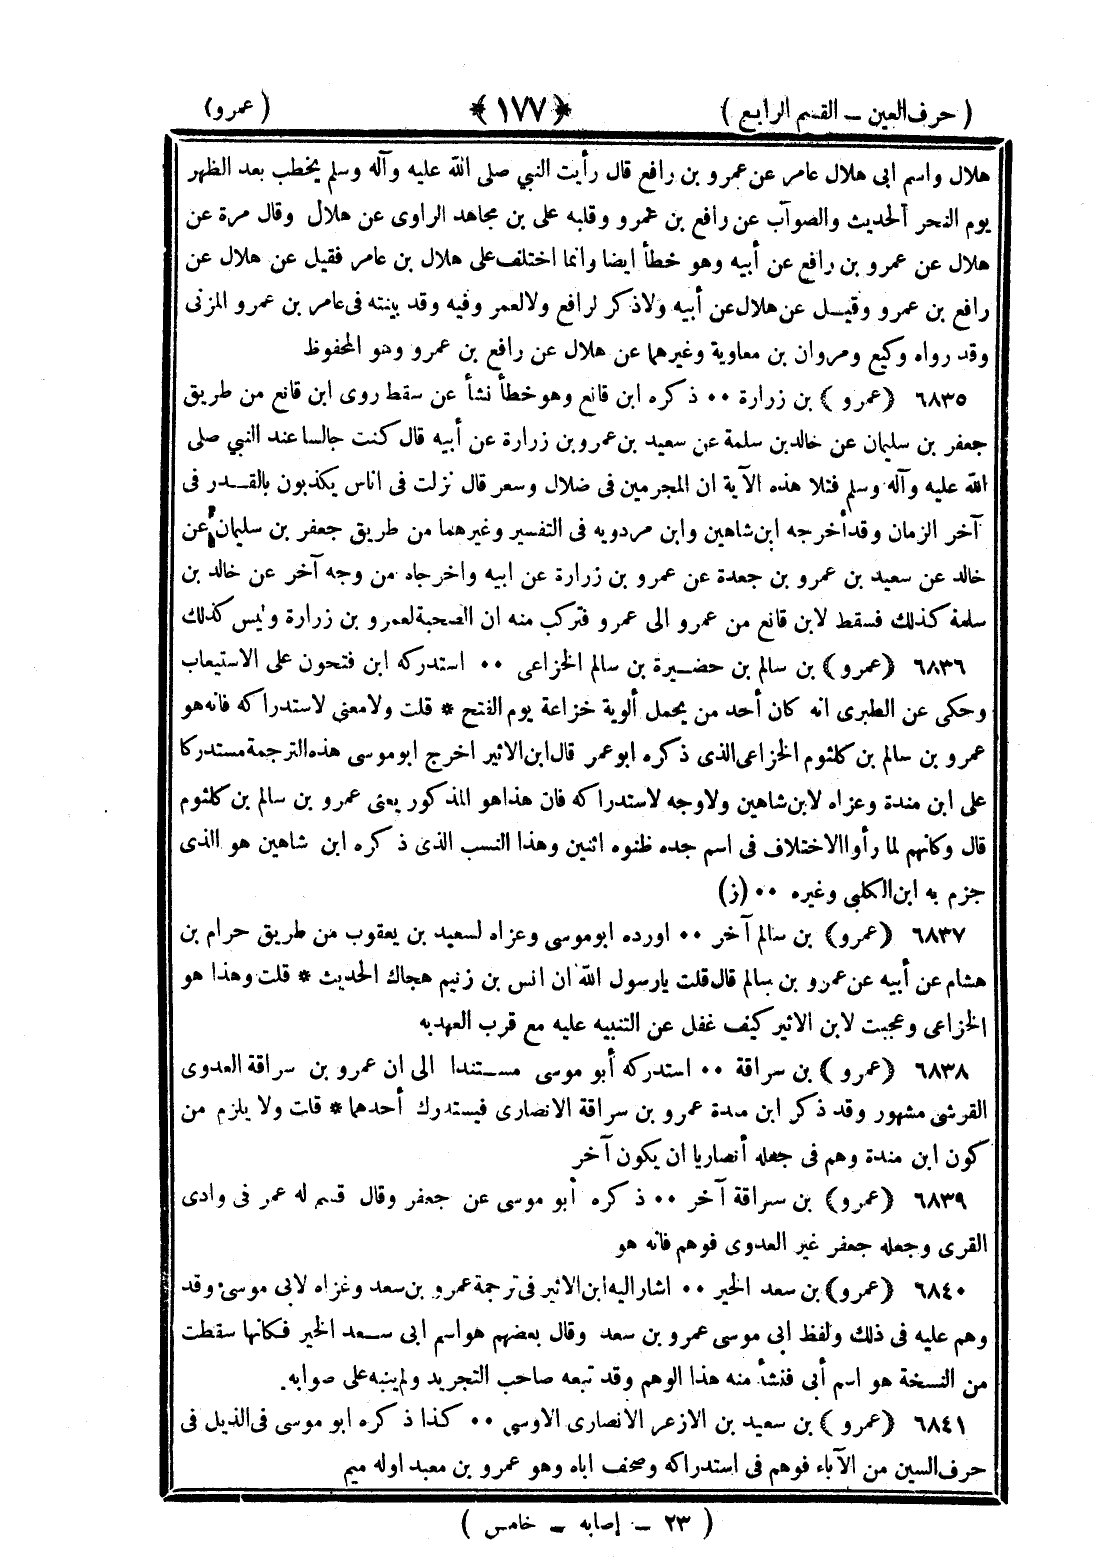 ( حرف العين – القسم الرابع ) ﴿ ١٧٧ ﴾ ( عمرو )
هلال واسم ابى هلال عامر عن عمرو بن رافع قال رأيت النبي صلى الله عليه وآله وسلم يخطب بعد الظهر
يوم النحر الحديث والصوآب عن رافع بن عمرو وقلبه على بن مجاهد الراوى عن هلال وقال مرة عن
هلال عن عمرو بن رافع عن أبيه وهو خطأ ايضا وانما اختلف على هلال بن عامر فقيل عن هلال عن
رافع بن عمرو وقيــل عن هلال عن أبيه ولاذكر لرافع ولالعمر وفيه وقد بينته فى عامر بن عمرو المزنى
وقد رواه وكيع ومروان بن معاوية وغيرهما عن هلال عن رافع بن عمرو وهو المحفوظ
٦٨٣٥ ﴿عمرو ﴾ بن زرارة ٠٠ ذكره ابن قانع وهو خطأ نشأ عن سقط روى ابن قانع من طريق
جعفر بن سليمان عن خالد بن سلمة عن سعيد بن عمرو بن زرارة عن أبيه قال كنت جالسا عند النبي صلى
الله عليه وآله وسلم فتلا هذه الآية ان المجرمين فى ضلال وسعر قال نزلت فى اناس يكذبون بالقــدر فى
آخر الزمان وقد أخرجه ابن شاهين وابن مردويه فى التفسير وغيرهما من طريق جعفر بن سليمان عن
خالد عن سعيد بن عمرو بن جعدة عن عمرو بن زرارة عن ابيه واخرجاه من وجه آخر عن خالد بن
سلمة كذلك فسقط لابن قانع من عمرو الى عمرو فتركب منه ان الصحبة لعمرو بن زرارة وليس كذلك
٦٨٣٦ ﴿عمرو﴾ بن سالم بن حضــيرة بن سالم الخزاعى ٠٠ استدركه ابن فتحون على الاستيعاب
وحكى عن الطبرى انه كان أحد من يحمل ألوية خزاعة يوم الفتح * قلت ولامعنى لاستدراكه فانه هو
عمرو بن سالم بن كلثوم الخزاعى الذى ذكره ابو عمر قال ابن الاثير اخرج ابو موسى هذه الترجمة مستدركا
على ابن مندة وعزاه لابن شاهين ولاوجه لاستدراكه فان هذا هو المذكور يعنى عمرو بن سالم بن كلثوم
قال وكانهم لما رأوا الاختلاف فى اسم جده ظنوه اثنين وهذا النسب الذى ذكره ابن شاهين هو الذى
جزم به ابن الكلبى وغيره ٠٠ (ز)
٦٨٣٧ ﴿عمرو﴾ بن سالم آخر ٠٠ اورده ابو موسى وعزاه لسعيد بن يعقوب من طريق حرام بن
هشام عن أبيه عن عمرو بن سالم قال قلت يارسول الله ان انس بن زنيم هجاك الحديث * قلت وهذا هو
الخزاعى وعجبت لابن الاثير كيف غفل عن التنبيه عليه مع قرب العهد به
٦٨٣٨ ﴿عمرو ﴾ بن سراقة ٠٠ استدركه أبو موسى مســتندا الى ان عمرو بن سراقة العدوى
القرشى مشهور وقد ذكر ابن مندة عمرو بن سراقة الانصارى فيستدرك أحدهما * قلت ولا يلزم من
كون ابن مندة وهم فى جعله أنصاريا ان يكون آخر
٦٨٣٩ ﴿عمرو﴾ بن سراقة آخر ٠٠ ذكره أبو موسى عن جعفر وقال قسم له عمر فى وادى
القرى وجعله جعفر غير العدوى فوهم فانه هو
٦٨٤٠ ﴿عمرو﴾ بن سعد الخير ٠٠ اشار اليه ابن الاثير فى ترجمة عمرو بن سعد وغزاه لابى موسى وقد
وهم عليه فى ذلك ولفظ ابى موسى عمرو بن سعد وقال بعضهم هو اسم ابى ســعد الخير فكانها سقطت
من النسخة هو اسم أبى فنشأ منه هذا الوهم وقد تبعه صاحب التجريد ولم ينبه على صوابه.
٦٨٤١ ﴿عمرو ﴾ بن سعيد بن الازعر الانصارى الاوسى ٠٠ كذا ذكره ابو موسى فى الذيل فى
حرف السين من الآباء فوهم فى استدراكه وصحف اباه وهو عمرو بن معبد اوله ميم
( ٢٣ – إصابه – خامس )